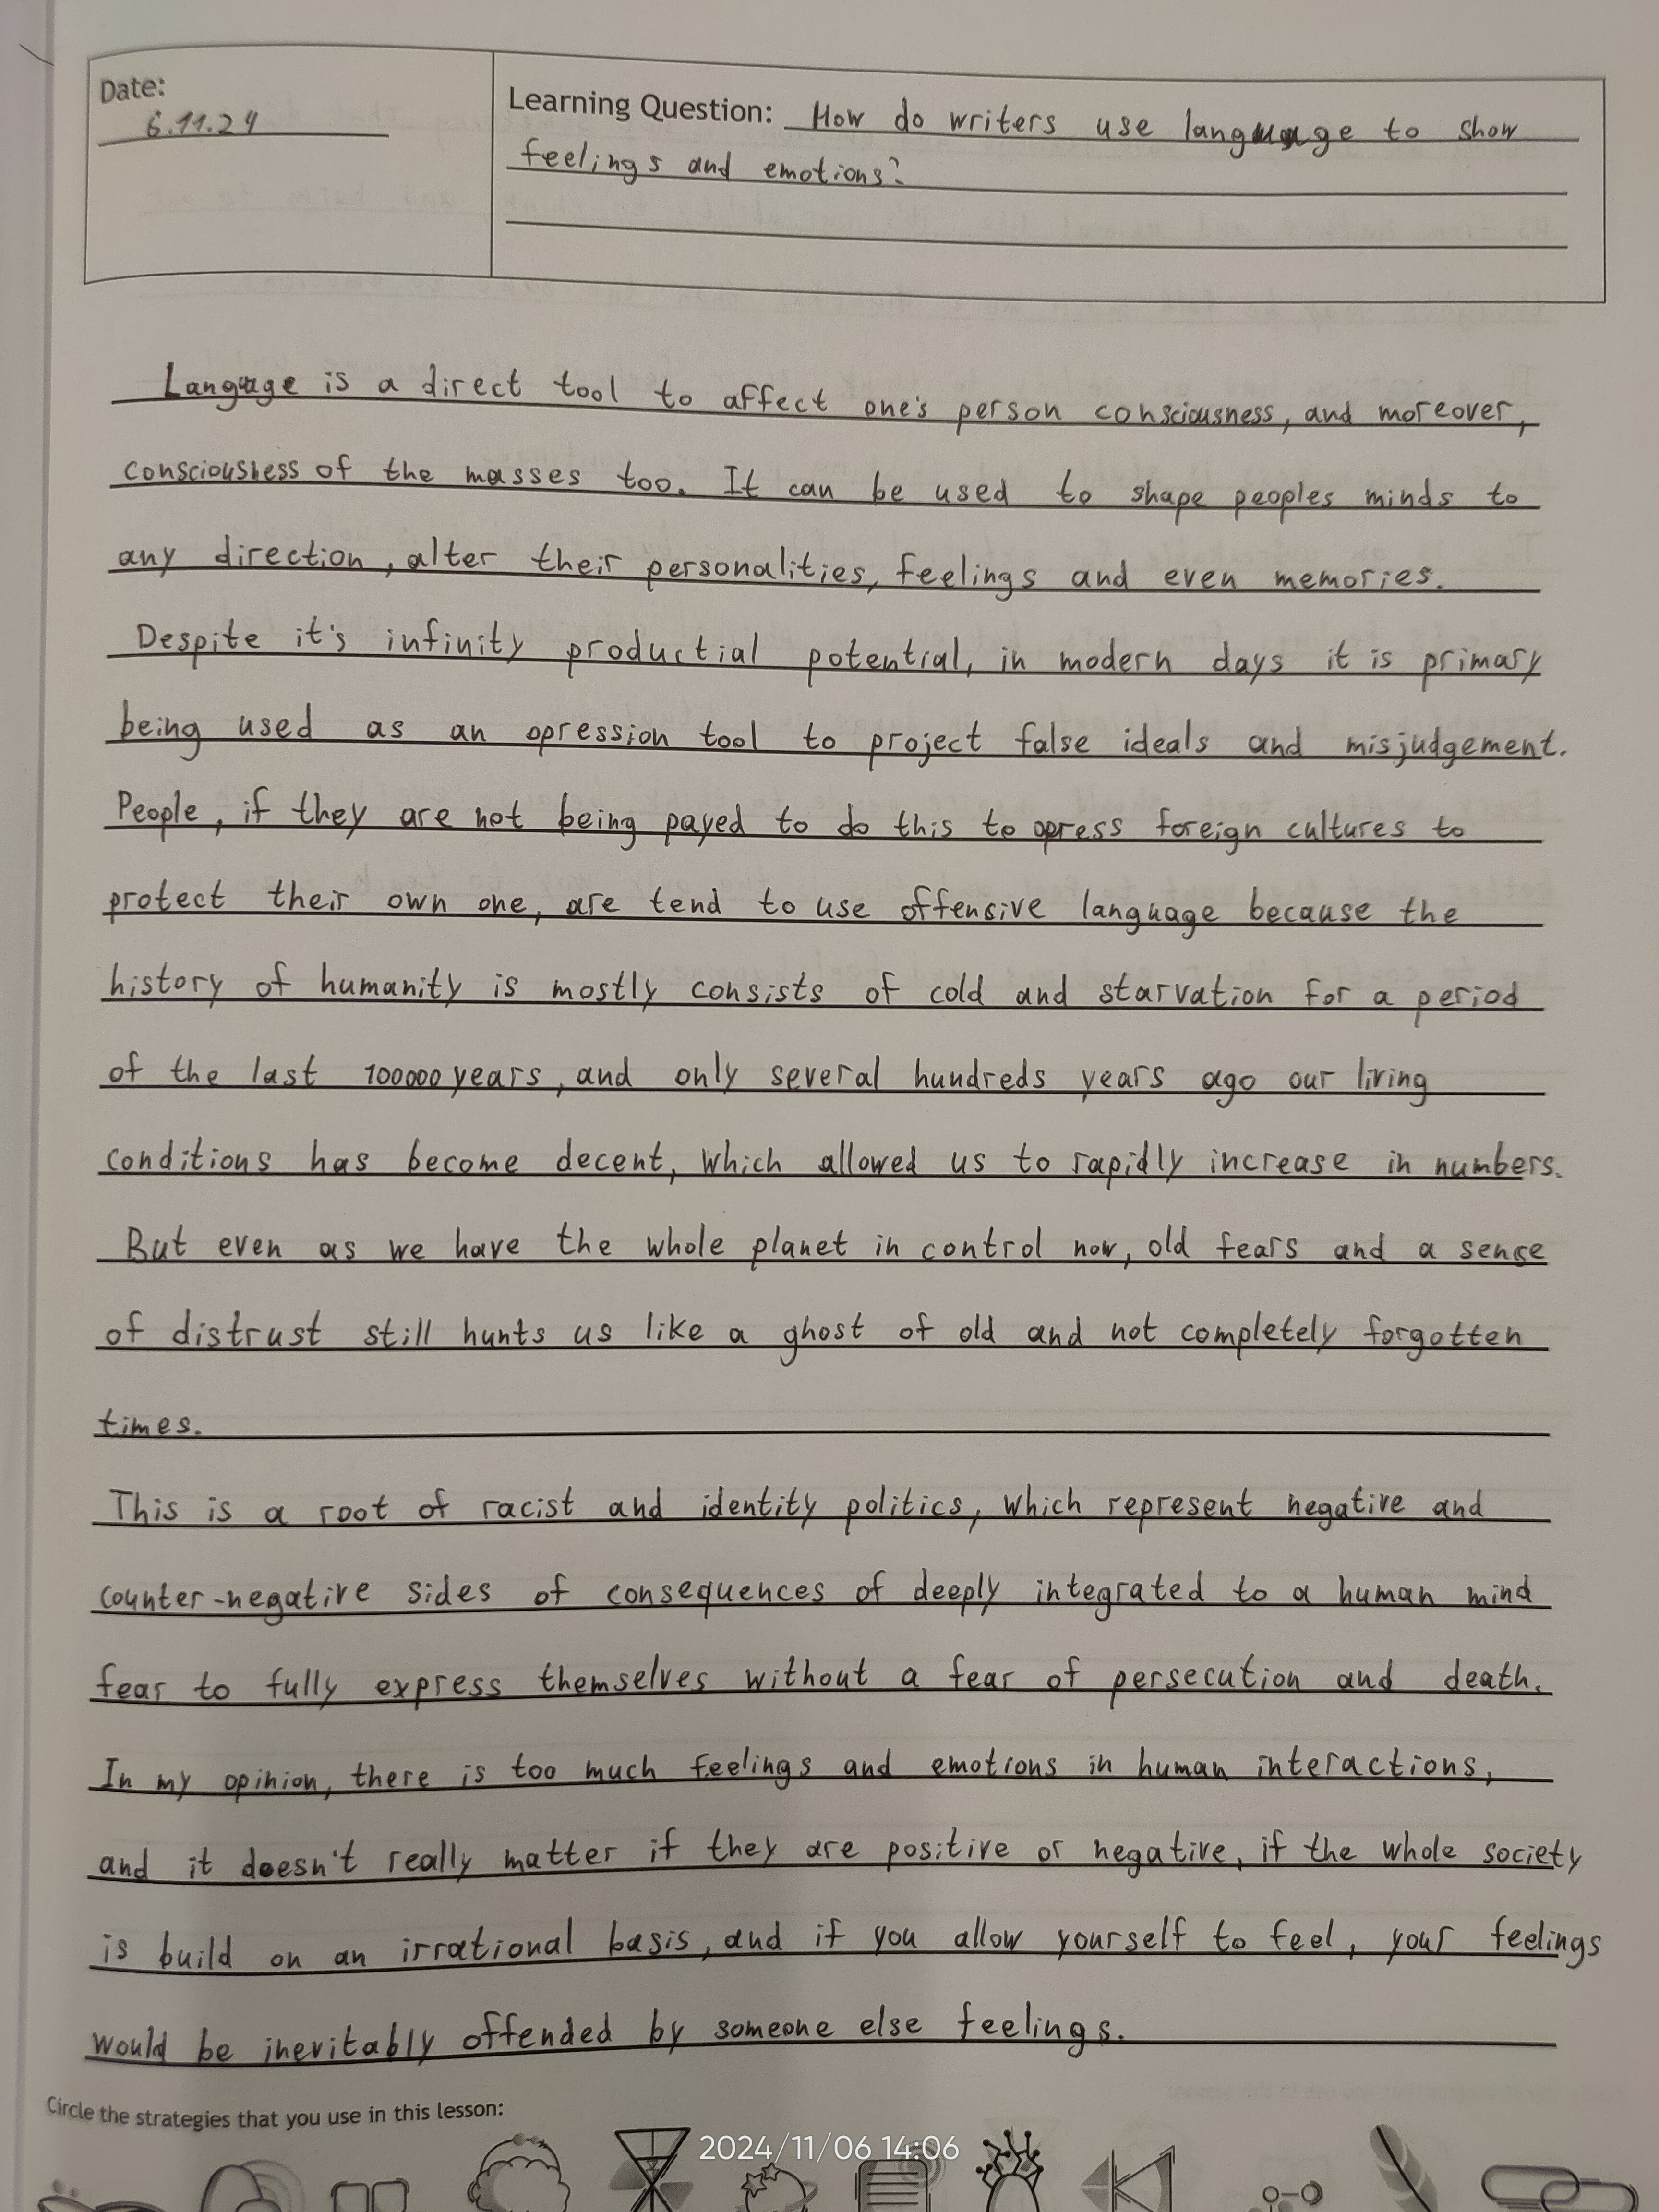 Date:
6.11.24
Learning Question: How do writers use language to show
feelings and emotions?
Language is a direct tool to affect one's person consciousness, and moreover,
consciousness of the masses too. It can be used to shape peoples minds to
any direction, alter their personalities, feelings and even memories.
Despite it's infinity productial potential, in modern days it is primary
being used as an opression tool to project false ideals and misjudgement.
People, if they are not being payed to do this to opress foreign cultures to
protect their own one, are tend to use offensive language because the
history of humanity is mostly consists of cold and starvation for a period
of the last 100000 years, and only several hundreds years ago our living
conditions has become decent, which allowed us to rapidly increase in numbers.
But even as we have the whole planet in control now, old fears and a sense
of distrust still hunts us like a ghost of old and not completely forgotten
times.
This is a root of racist and identity politics, which represent negative and
counter-negative sides of consequences of deeply integrated to a human mind
fear to fully express themselves without a fear of persecution and death.
In my opinion, there is too much feelings and emotions in human interactions,
and it doesn't really matter if they are positive or negative, if the whole society
is build on an irrational basis, and if you allow yourself to feel, your feelings
would be inevitably offended by someone else feelings.
Circle the strategies that you use in this lesson:
2024/11/06 14:06